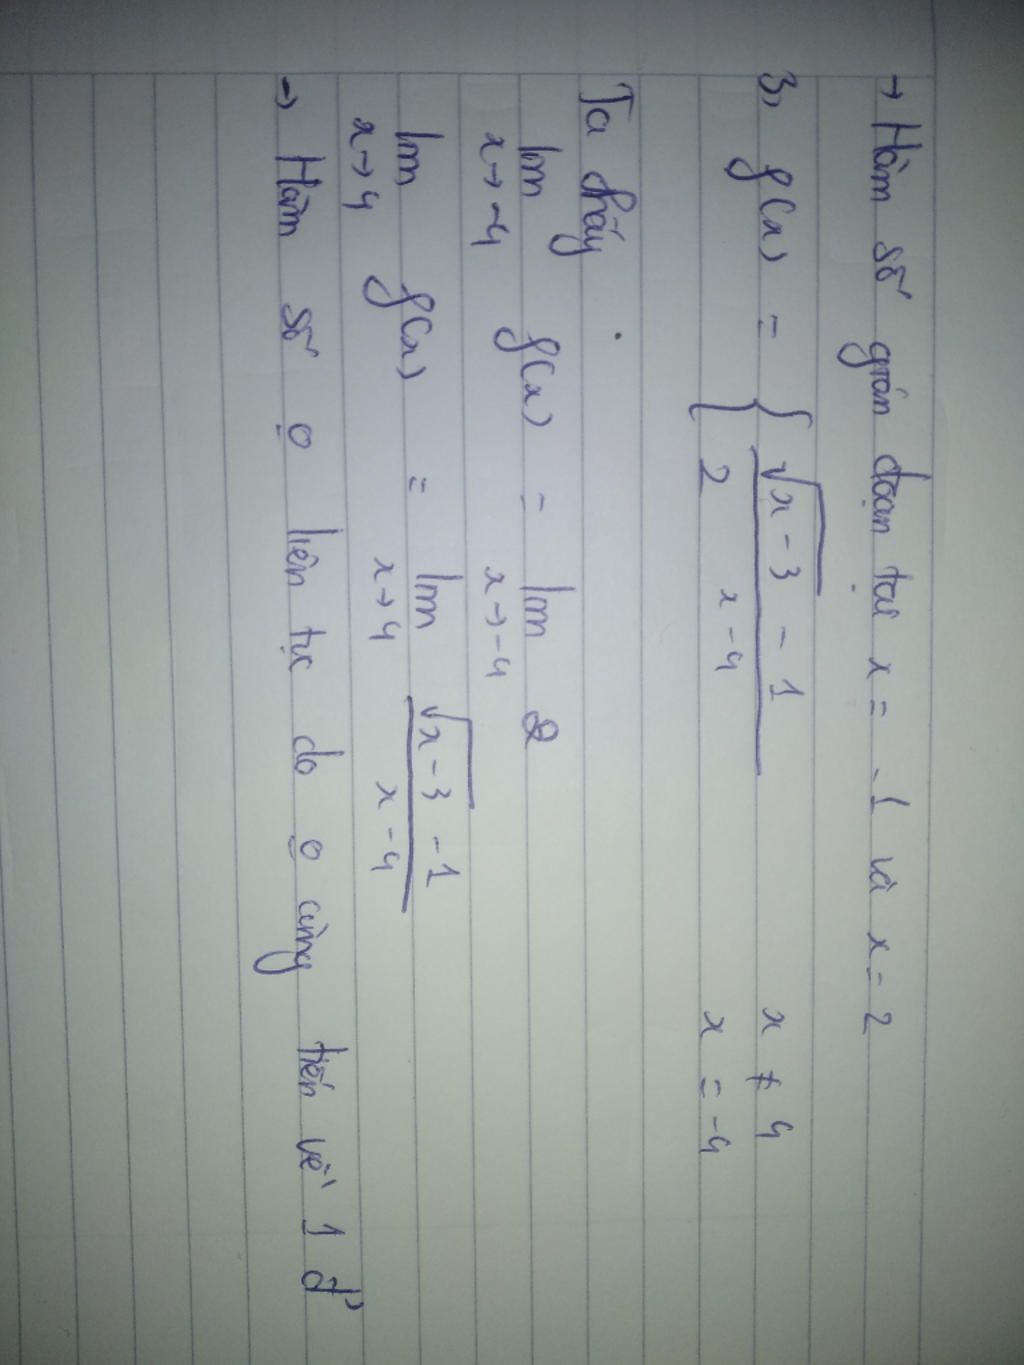 → Hàm số gián đoạn tại x = -1 và x = 2
3, f(x) = { √x-3 - 1 / x - 4 x ≠ 4
2 x = -4
Ta thấy
lim x→-4 f(x) = lim x→-4 2
lim x→4 f(x) = lim x→4 √x-3 - 1 / x - 4
→ Hàm số o liên tục do o cùng tiến về 1 đ'